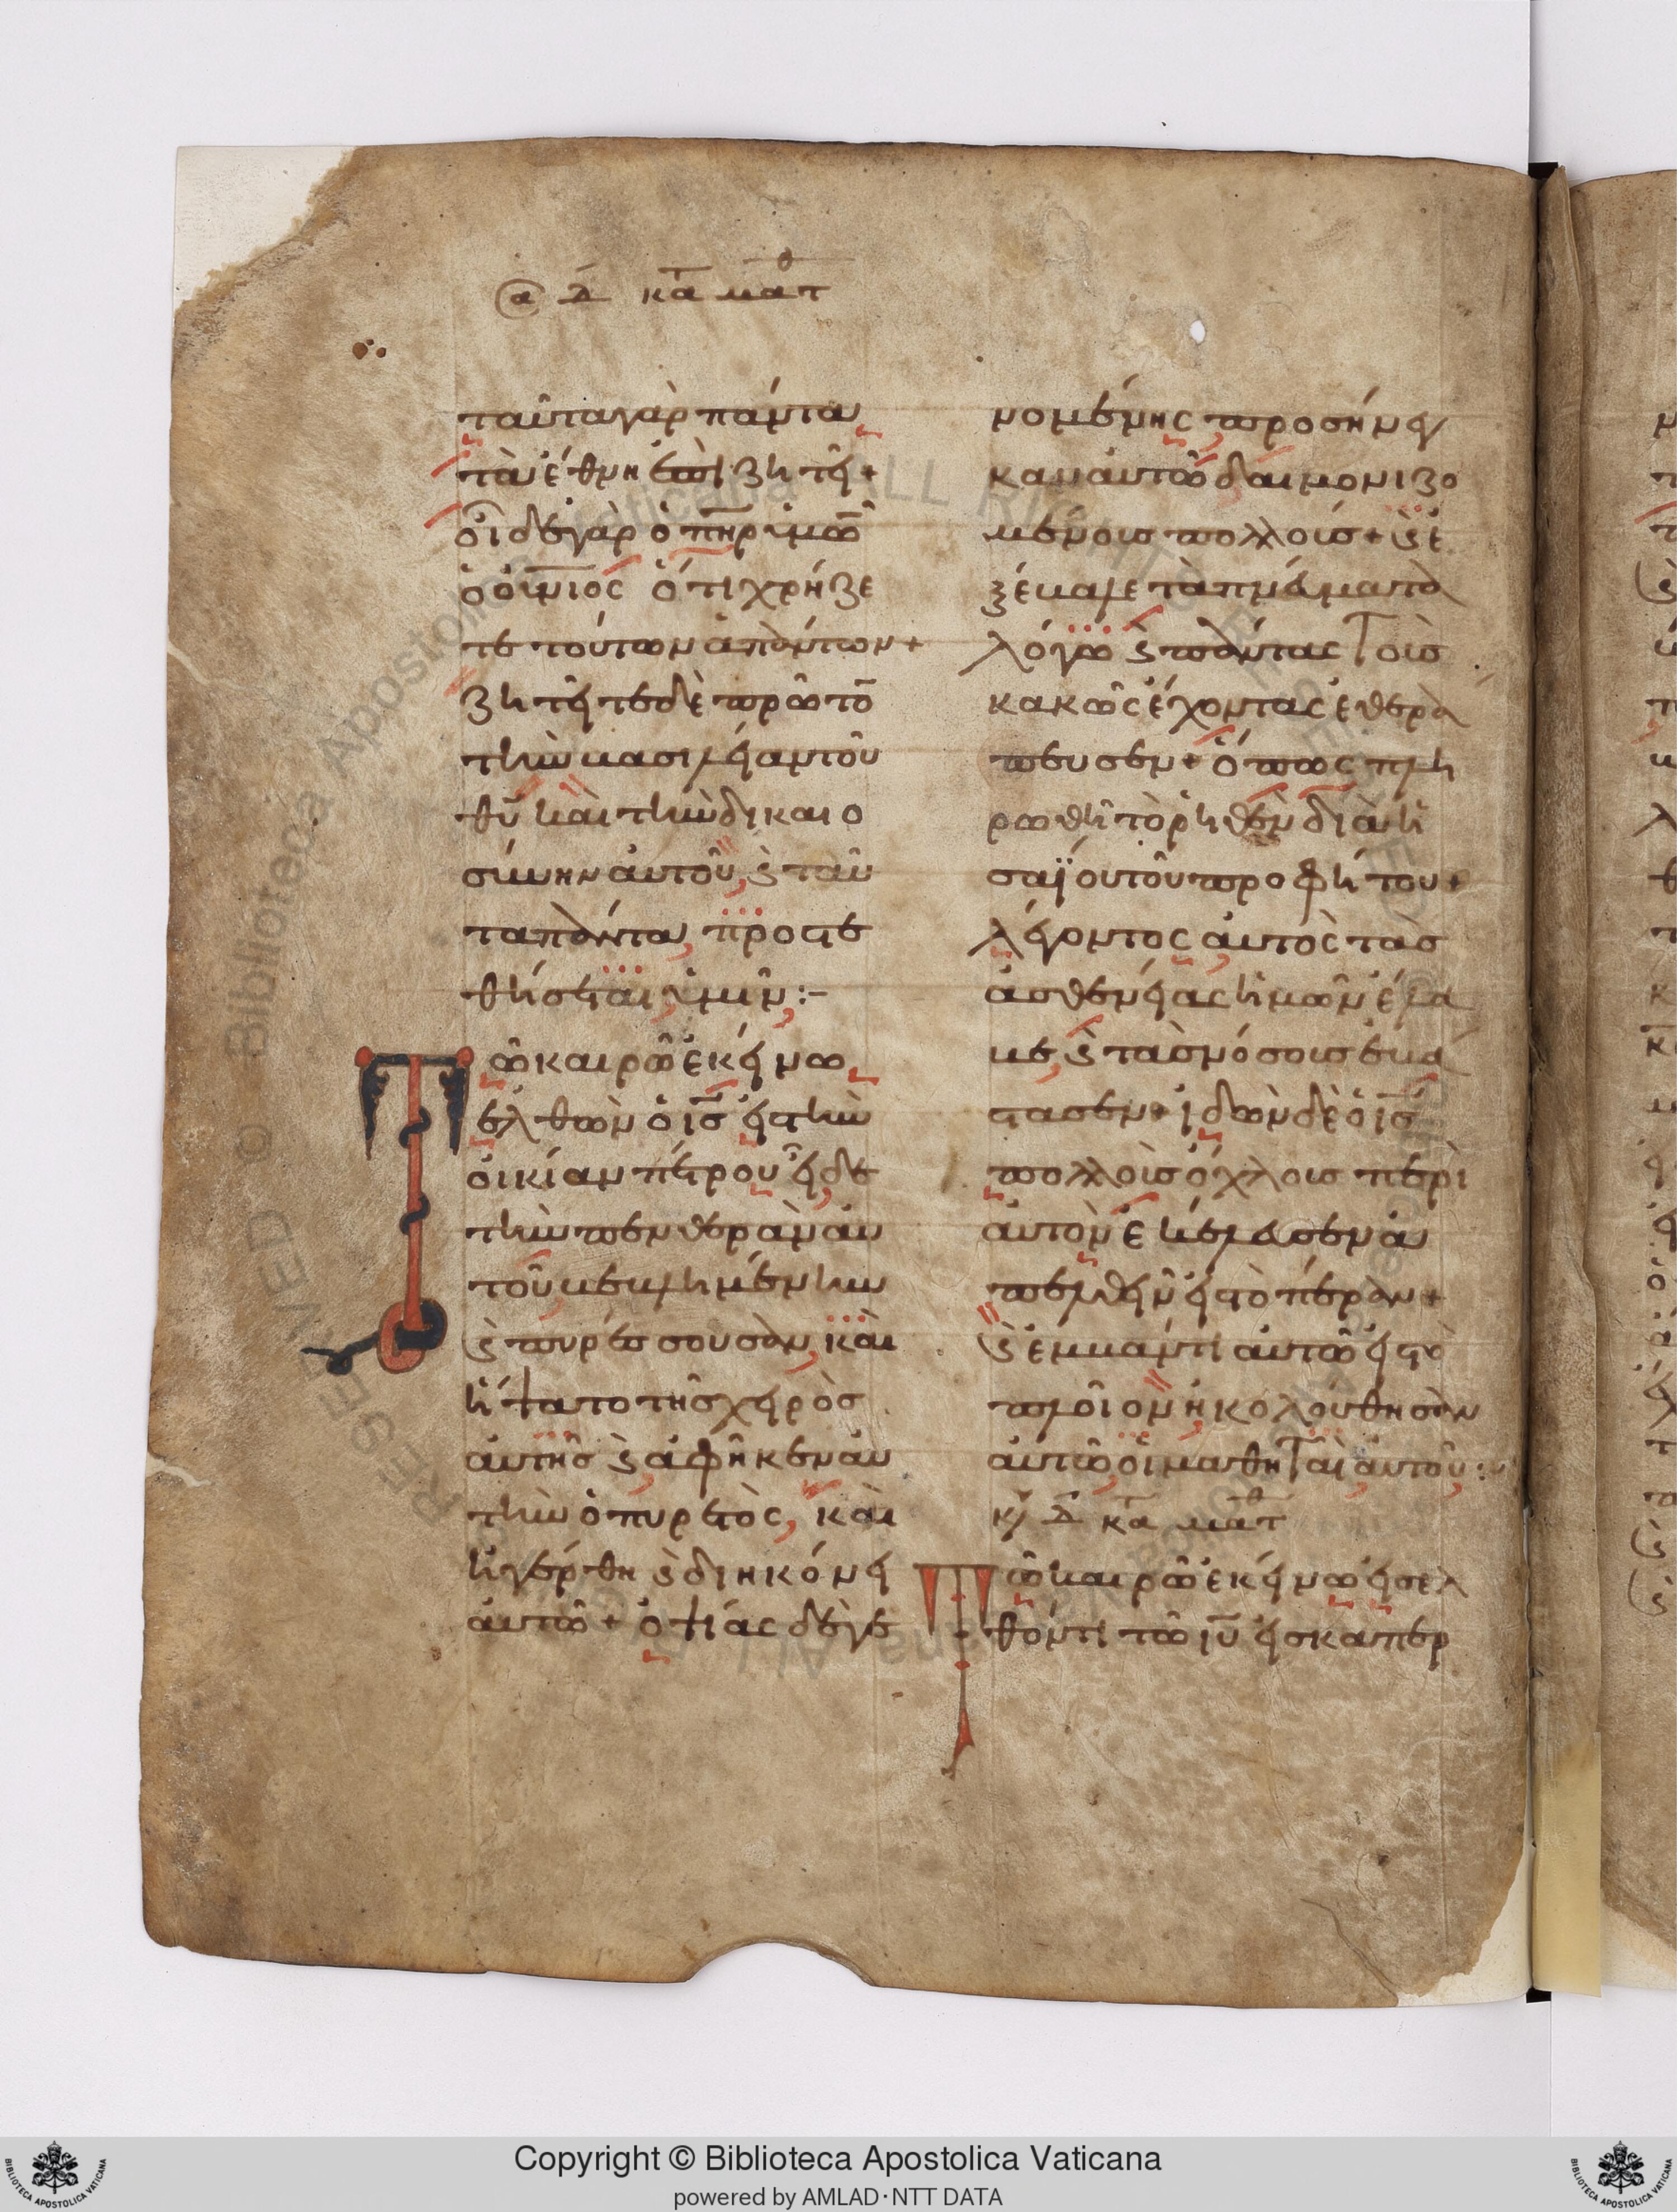 σα Δ κατ ματθ
ταῦτα γὰρ πάντα
τὰ ἔθνη ἐπιζητεῖ +
οἶδε γὰρ ὁ πηρ ὑμῶν
ὁ οὐνιος ὅτι χρήζε
τε τούτων ἁπάντων +
ζητεῖτε δὲ πρῶτον
τὴν βασιλείαν τοῦ
θυ καὶ τὴν δικαιο
σύνην αὐτοῦ, ϗ ταῦ
τα πάντα, προστε
θήσεται ὑμῖν :–
Τῶ καιρῶ ἐκείνω
ἐλθὼν ὁ ις εἰς τὴν
οἰκίαν πέτρου εἶδε
τὴν πενθερὰν αὐ
τοῦ, βεβλημένην
ϗ πυρέσσουσαν, καὶ
ἥψατο τῆς χειρὸς
αὐτῆς ϗ ἀφῆκεν αὐ
τὴν ὁ πυρετὸς, καὶ
ἠγέρθη ϗ διηκόνει
αὐτῶ + ὀψίας δὲ γε
νομένης προσήνεγ
καν αὐτῶ δαιμονιζο
μένοις πολλοίς + ϗ ἐ
ξέβαλε τὰ πνεύματα
λόγω ϗ πάντας τοὺς
κακῶς ἔχοντας ἐθερά
πευσεν + ὅπως πλη
ρωθῆ τὸ ρηθὲν διὰ ἡ
σαΐου τοῦ προφήτου +
λέγοντος αὐτὸς τὰς
ἀσθενείας ἡμῶν ἔλα
βε, ϗ τὰς νόσους ἐβά
στασεν + ἰδὼν δὲ ὁ ις
πολλοὺς ὄχλους περὶ
αὐτὸν ἐκέλευσεν ἀ
πελθεῖν εἰς τὸ πέραν +
ϗ ἐμβάντι αὐτῶ εἰς τὸ
πλοῖον ἠκολούθησαν
αὐτῶ, οἱ μαθηταὶ αὐτοῦ :
κυ Δ κατ ματθ
Τῶ καιρῶ ἐκείνω εἰσελ
θόντι τῶ ιυ εἰς καπερ
Copyright © Biblioteca Apostolica Vaticana
powered by AMLAD·NTT DATA